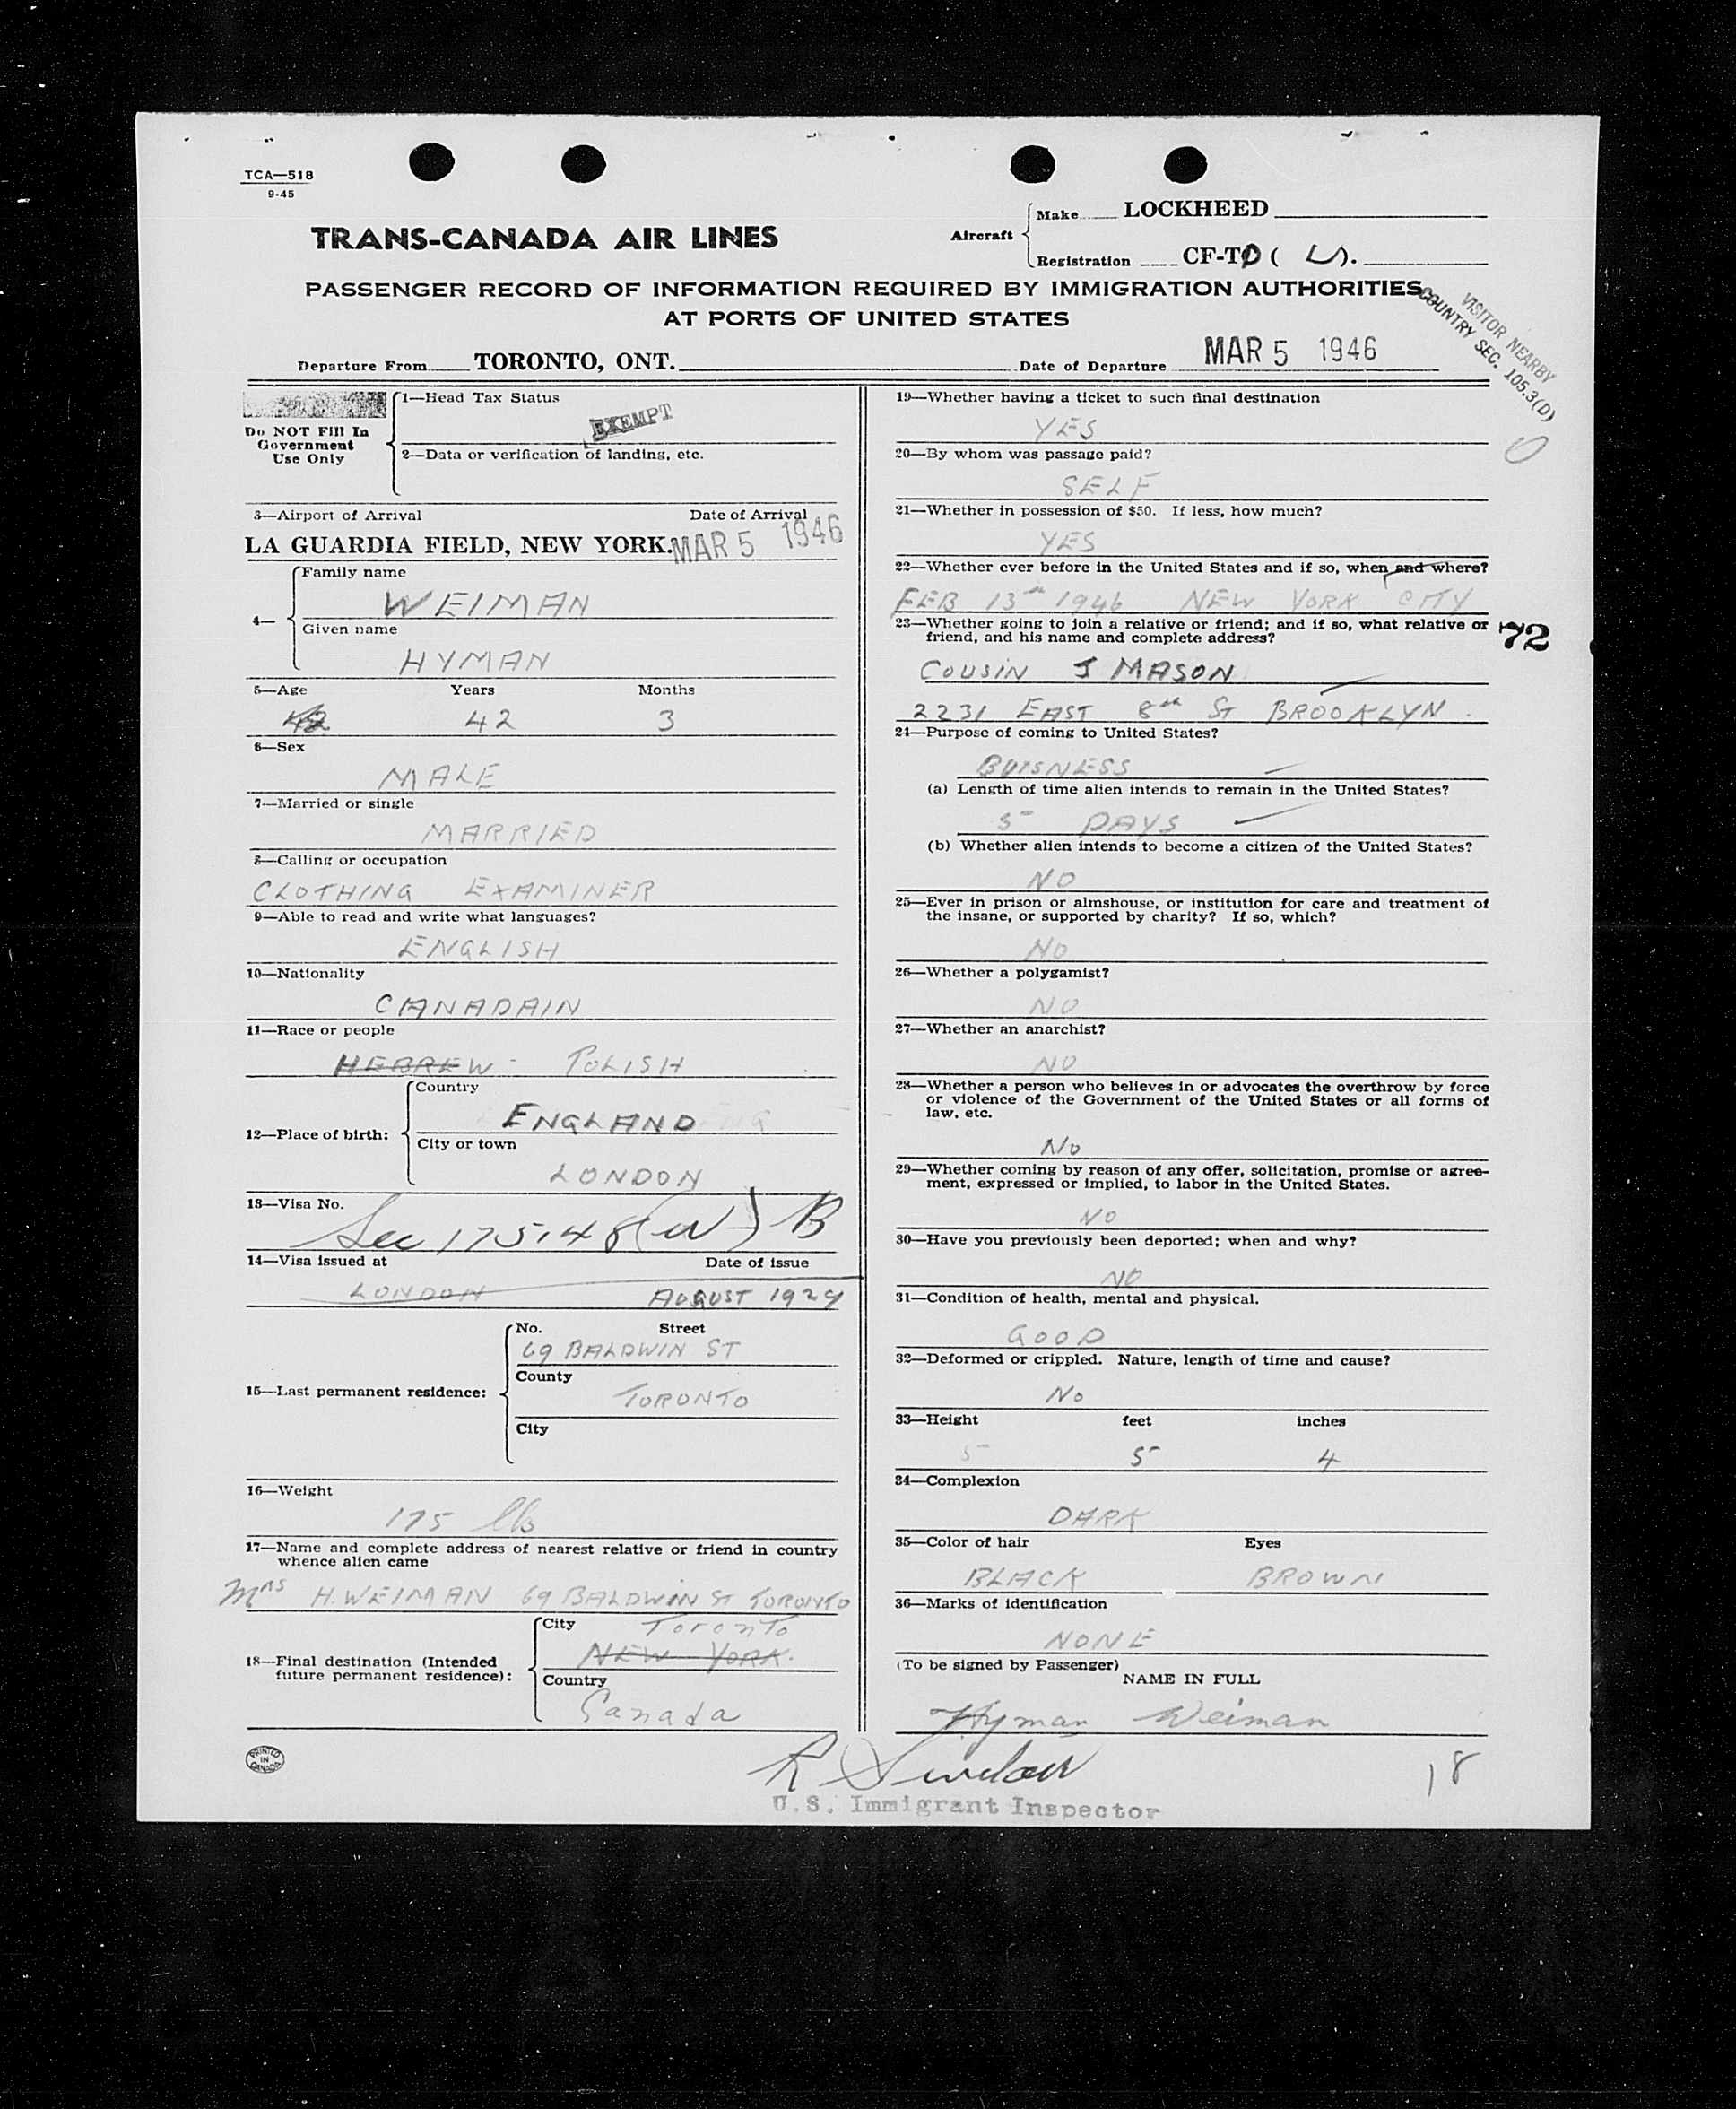 TCA—518
9-45
TRANS-CANADA AIR LINES
Aircraft
Make LOCKHEED
Registration CF-TD ( L ).
PASSENGER RECORD OF INFORMATION REQUIRED BY IMMIGRATION AUTHORITIES
AT PORTS OF UNITED STATES
VISITOR NEARBY
COUNTRY SEC. 105.3(D)
Departure From TORONTO, ONT. Date of Departure MAR 5 1946
Do NOT Fill In
Government
Use Only
1—Head Tax Status
EXEMPT
2—Data or verification of landing, etc.
3—Airport of Arrival Date of Arrival
LA GUARDIA FIELD, NEW YORK. MAR 5 1946
4—
Family name
WEIMAN
Given name
HYMAN
5—Age Years Months
42 42 3
6—Sex
MALE
7—Married or single
MARRIED
8—Calling or occupation
CLOTHING EXAMINER
9—Able to read and write what languages?
ENGLISH
10—Nationality
CANADAIN
11—Race or people
HEBREW - POLISH
12—Place of birth:
Country
ENGLAND
City or town
LONDON
13—Visa No.
Sec 175.48(W) B
14—Visa issued at Date of issue
LONDON AUGUST 1924
15—Last permanent residence:
No. Street
69 BALDWIN ST
County
TORONTO
City
16—Weight
175 lbs
17—Name and complete address of nearest relative or friend in country
whence alien came
Mrs H. WEIMAN 69 BALDWIN ST TORONTO
18—Final destination (Intended
future permanent residence):
City Toronto
NEW YORK.
Country
Canada
PRINTED
IN
CANADA
19—Whether having a ticket to such final destination
YES
20—By whom was passage paid?
SELF
21—Whether in possession of $50. If less, how much?
YES
22—Whether ever before in the United States and if so, when and where?
FEB 13th 1946 NEW YORK CITY
23—Whether going to join a relative or friend; and if so, what relative or
friend, and his name and complete address?
72
COUSIN J MASON
2231 EAST 8th ST BROOKLYN.
24—Purpose of coming to United States?
BUISNESS
(a) Length of time alien intends to remain in the United States?
5 DAYS
(b) Whether alien intends to become a citizen of the United States?
NO
25—Ever in prison or almshouse, or institution for care and treatment of
the insane, or supported by charity? If so, which?
NO
26—Whether a polygamist?
NO
27—Whether an anarchist?
NO
28—Whether a person who believes in or advocates the overthrow by force
or violence of the Government of the United States or all forms of
law, etc.
NO
29—Whether coming by reason of any offer, solicitation, promise or agree-
ment, expressed or implied, to labor in the United States.
NO
30—Have you previously been deported; when and why?
NO
31—Condition of health, mental and physical.
GOOD
32—Deformed or crippled. Nature, length of time and cause?
NO
33—Height feet inches
5 5 4
34—Complexion
DARK
35—Color of hair Eyes
BLACK BROWN
36—Marks of identification
NONE
(To be signed by Passenger)
NAME IN FULL
Hyman Weiman
R Sinclair
U.S. Immigrant Inspector
18